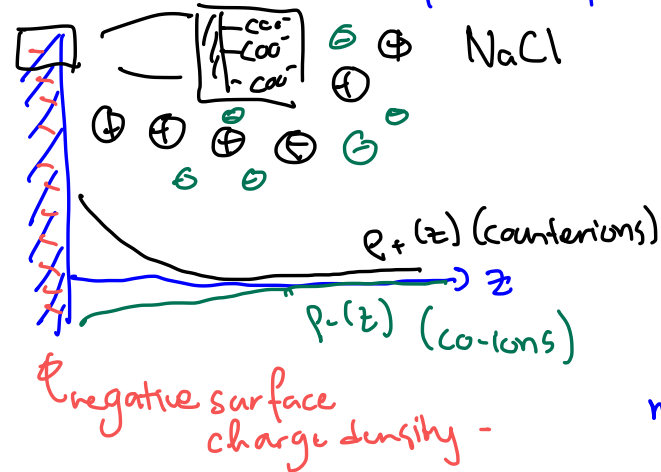 COO⁻
COO⁻
- COO⁻
NaCl
ρ₊(z) (counterions)
z
ρ₋(z) (co-ions)
negative surface
charge density -